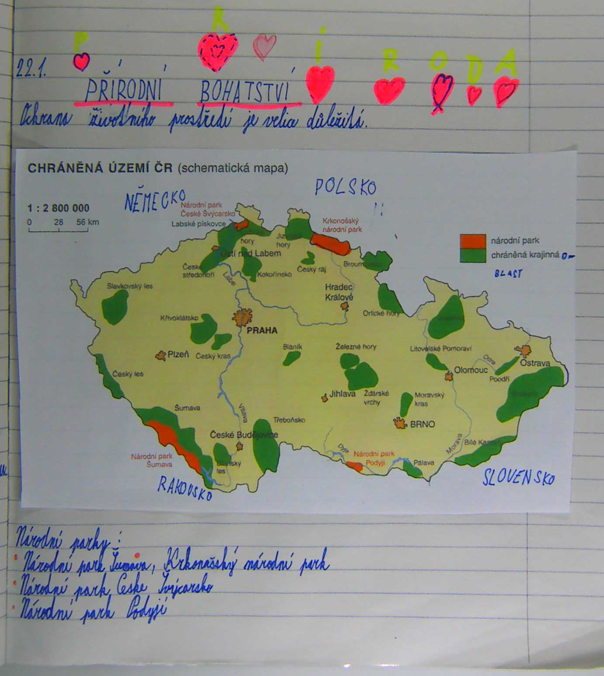 P Ř Í R O D A
22.1.
PŘÍRODNÍ BOHATSTVÍ
Ochrana životního prostředí je velice důležitá.
CHRÁNĚNÁ ÚZEMÍ ČR (schematická mapa)
NĚMECKO
POLSKO
1 : 2 800 000
0 28 56 km
Národní park
České Švýcarsko
Labské pískovce
Krkonošský
národní park
národní park
chráněná krajinná O-
BLAST
hory
hory
Ústí nad Labem
České
středohoří
Kokořínsko
Český ráj
Broum
Labe
Slavkovský les
Hradec
Králové
Křivoklátsko
PRAHA
Orlické hory
Český kras
Plzeň
Blaník
Železné hory
Litovelské Pomoraví
Odra
Ostrava
Olomouc
Poodří
Český les
Jihlava
Žďárské
vrchy
Moravský
kras
Šumava
Vltava
Třeboňsko
BRNO
České Budějovice
Národní park
Šumava
les
Dyje
Národní park
Podyjí
Pálava
Morava
Bílé Karpaty
RAKOUSKO
SLOVENSKO
Národní parky:
Národní park Šumava, Krkonošský národní park
Národní park České Švýcarsko
Národní park Podyjí